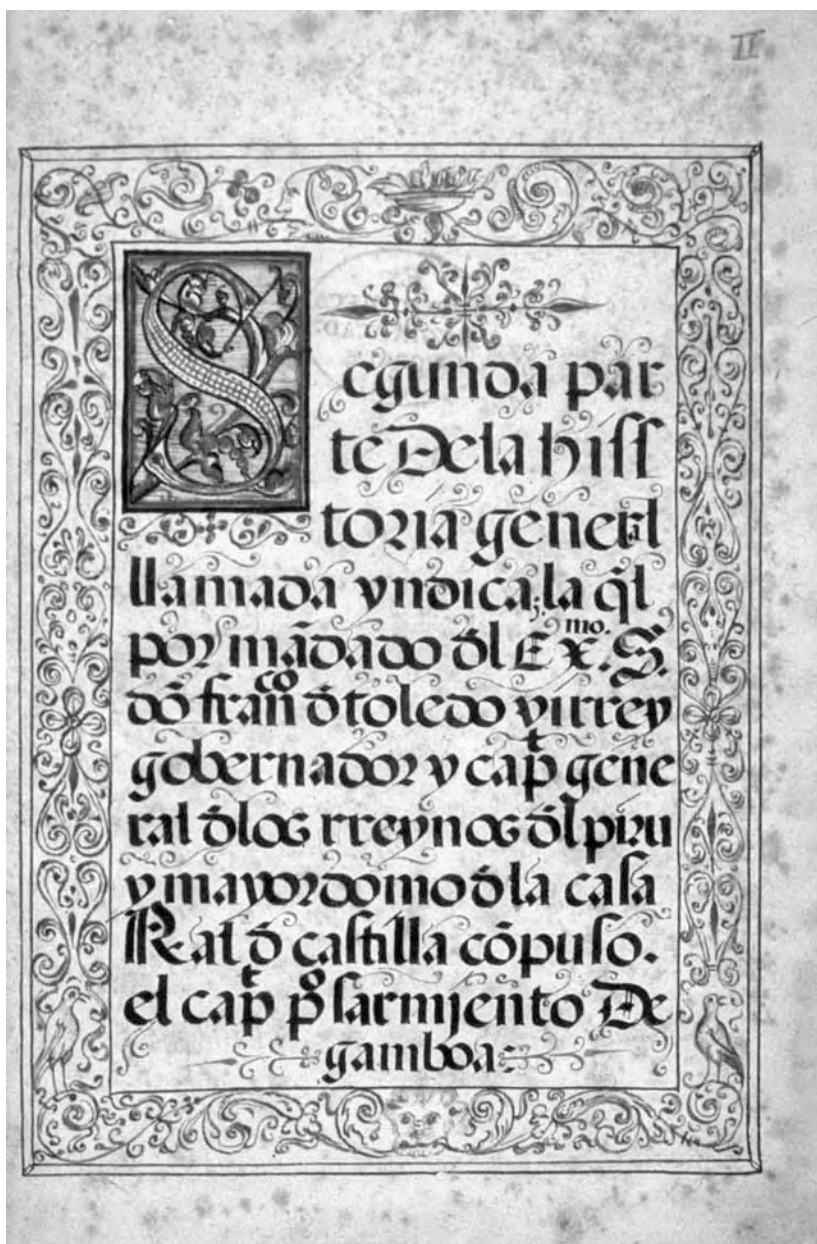 II
Segunda par
te Dela hiss
toria generl
llamada yndica; la ql̄
por mādado đl Exmo. S.
dō franco đ toledo virrey
gobernador y capt gene
ral đlos rreynos đl piru
y mayordomo đ la casa
Ral đ castilla cōpuso.
el capt po sarmjento De
gamboa: